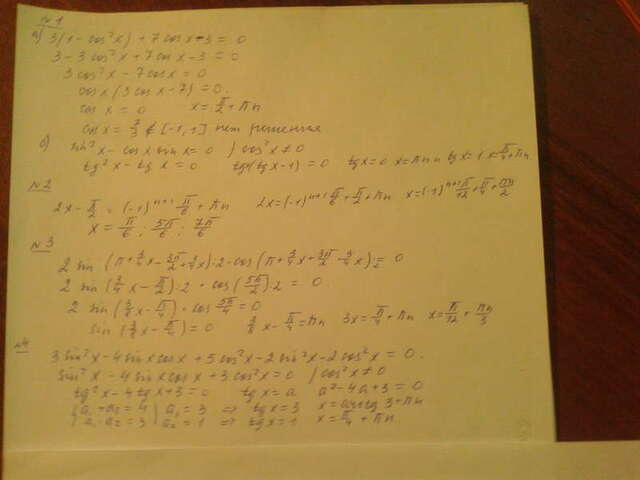 №1
а) 3(1 - cos²x) + 7cosx - 3 = 0
3 - 3cos²x + 7cosx - 3 = 0
3cos²x - 7cosx = 0
cosx(3cosx - 7) = 0.
cosx = 0 x = π/2 + πn
cosx = 7/3 ∉ [-1, 1] нет решения
б) sin²x - cosx sinx = 0 / cos²x ≠ 0
tg²x - tgx = 0 tgx(tgx - 1) = 0 tgx = 0 x = πn tgx = 1 x = π/4 + πn
№2
2x - π/2 = (-1)ⁿ⁺¹ π/6 + πn 2x = (-1)ⁿ⁺¹ π/6 + π/2 + πn x = (-1)ⁿ⁺¹ π/12 + π/4 + πn/2
x = π/6; 5π/6; 7π/6
№3
2 sin(π + 3/4x - 3π/2 + 3/4x):2 · cos(π + 3/4x + 3π/2 - 3/4x):2 = 0
2 sin(3/4x - π/2):2 · cos(5π/2):2 = 0
2 sin(3/8x - π/4) · cos 5π/4 = 0
sin(3/8x - π/4) = 0 3/8x - π/4 = πn 3x = π/4 + πn x = π/12 + πn/3
№4
3sin²x - 4sinxcosx + 5cos²x - 2sin²x - 2cos²x = 0.
sin²x - 4sinxcosx + 3cos²x = 0 / cos²x ≠ 0
tg²x - 4tgx + 3 = 0 tgx = a a² - 4a + 3 = 0
{a₁ + a₂ = 4 | a₁ = 3 ⇒ tgx = 3 x = arctg 3 + πn
{a₁ · a₂ = 3 | a₂ = 1 ⇒ tgx = 1 x = π/4 + πn